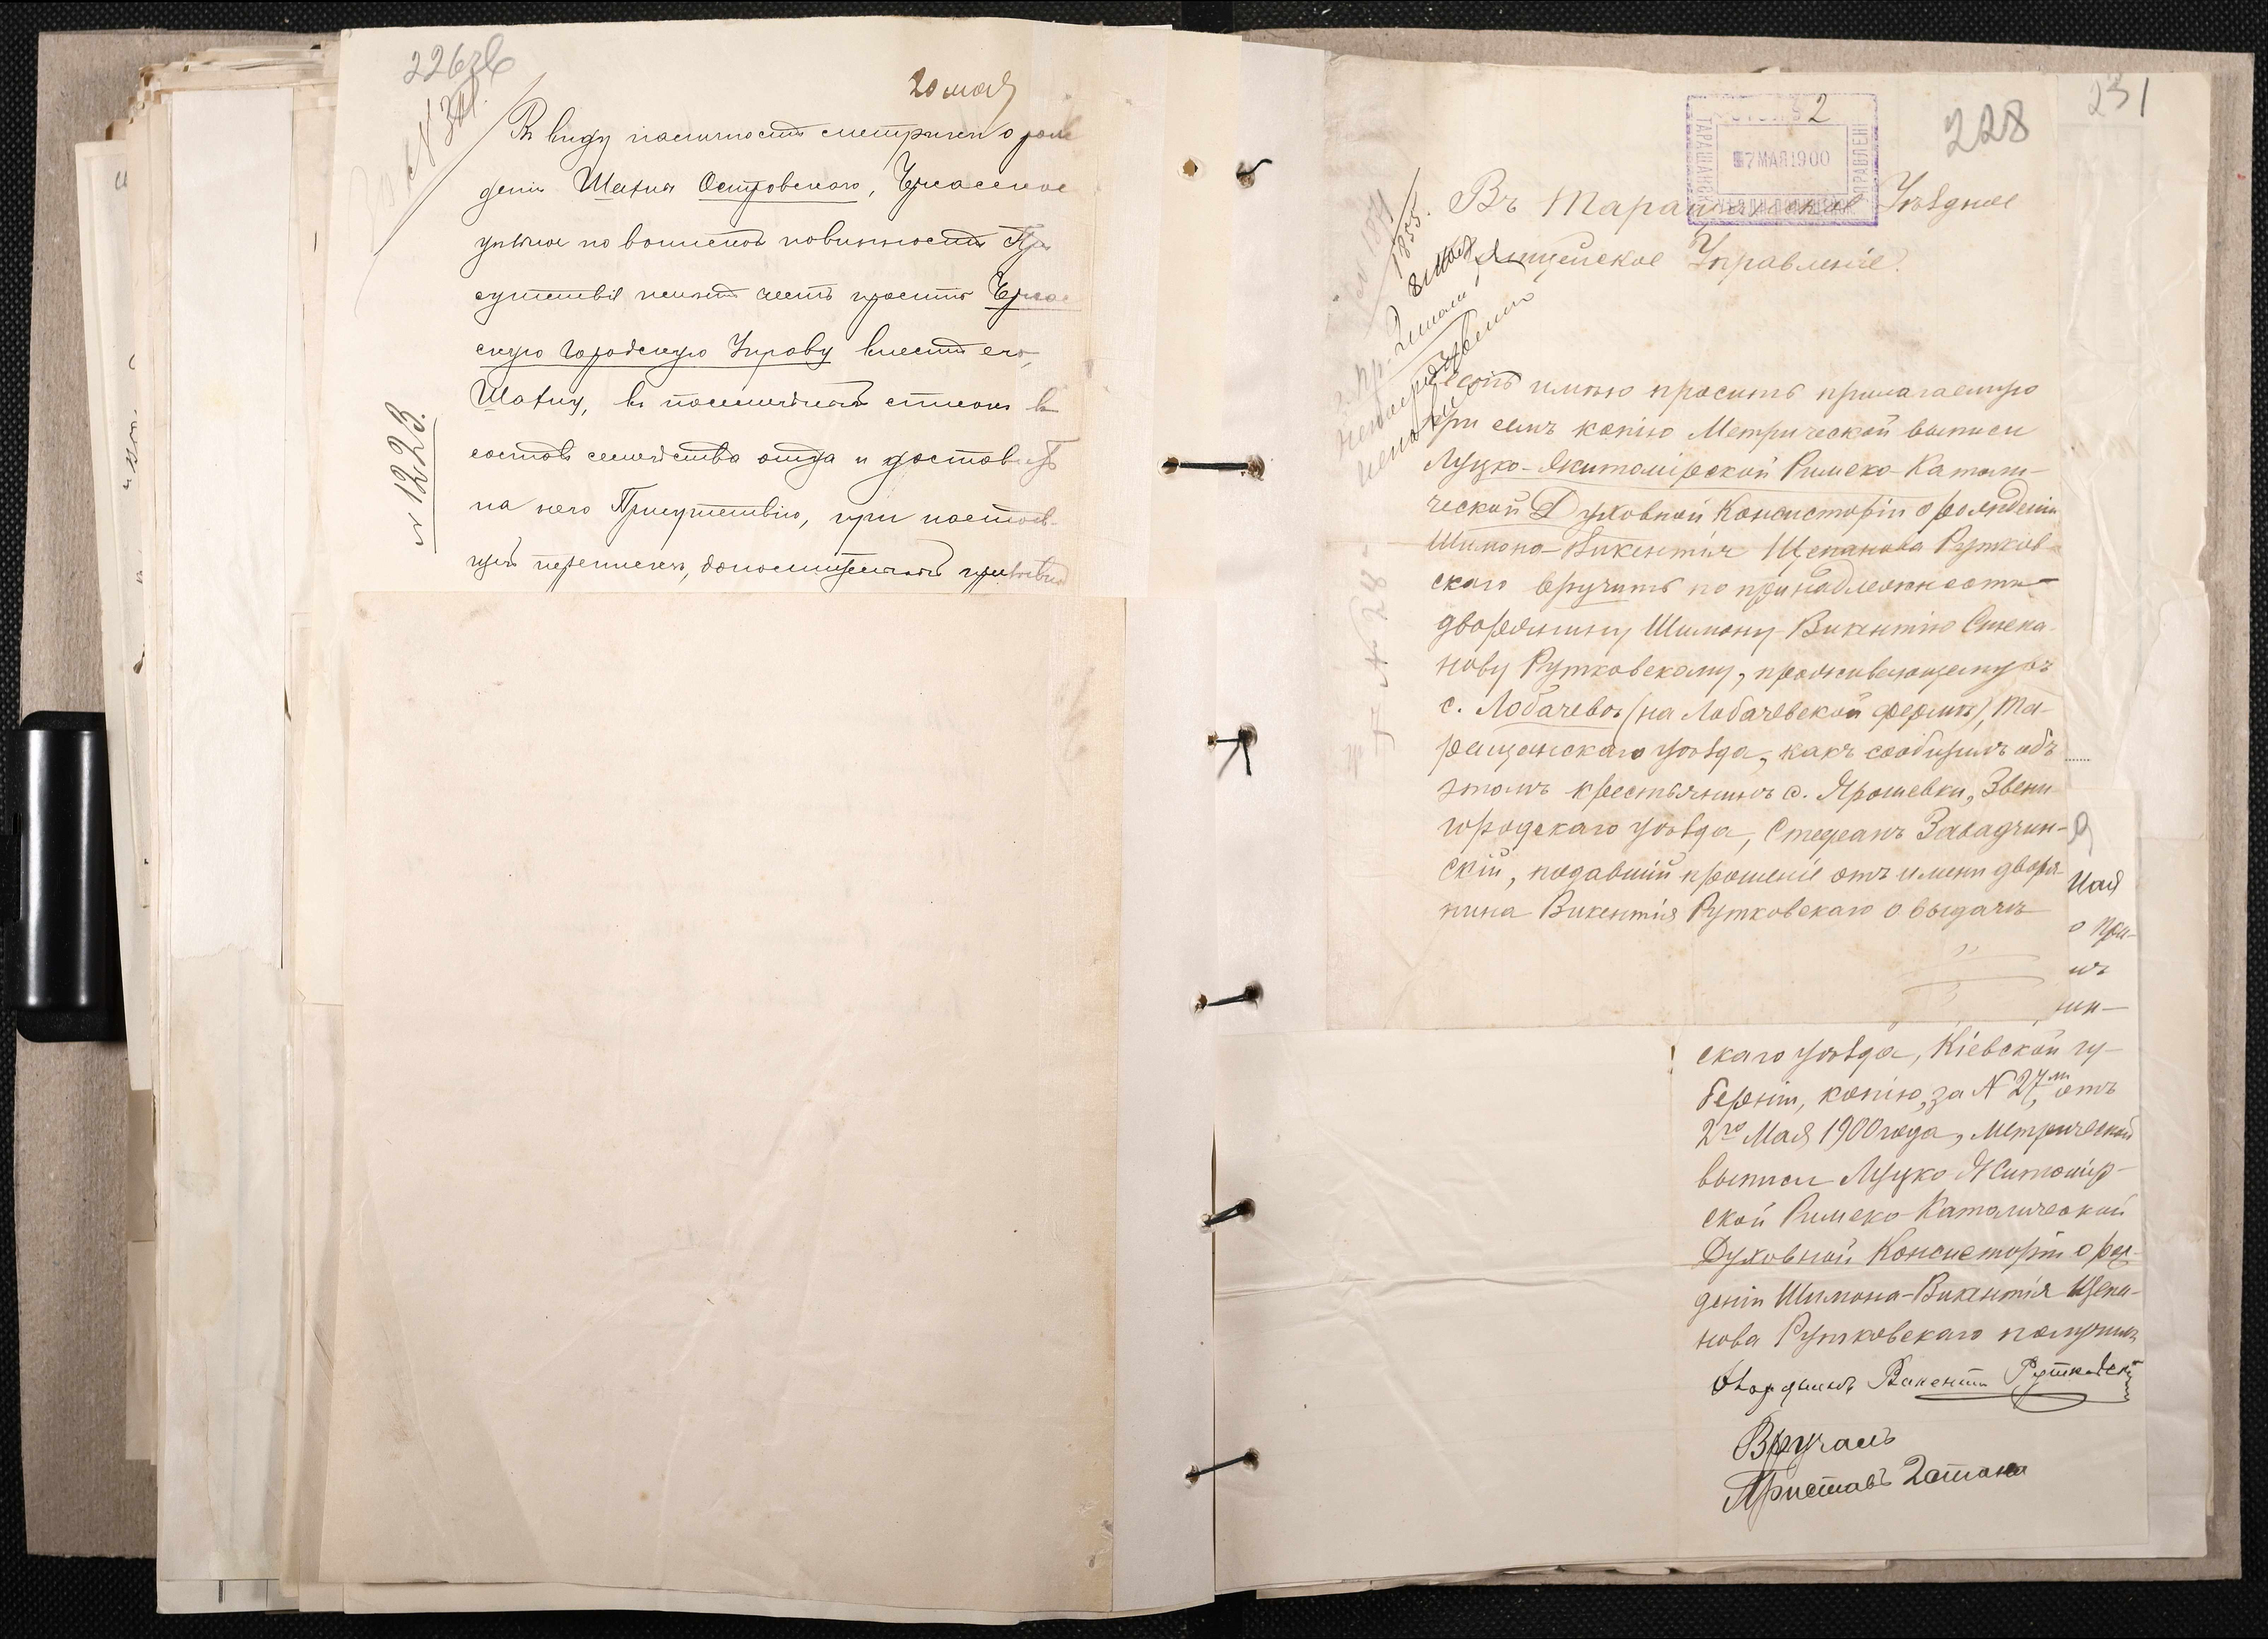 226 об
20 мая
Въ виду наличности метрики о рож
деніи Шаи Островскаго, Черкасское
уѣздное по воинской повинности При
сутствіе имѣетъ честь просить Черкас
скую Городскую Управу внести его,
въ посемейный списокъ въ
составъ семейства отца и доставить
на него Присутствію, при настоя-
щей перепискѣ, дополнительный призывной
№ 1223.
231
228
2
7 МАЯ 1900
ТАРАЩАНСК
Въ Таращанское Уѣздное
Полицейское Управленіе.
1855.
8 мая
Честь имѣю просить прилагаемую
при семъ копію Метрической выписи
Луцко-Житомірской Римско-Католи-
ческой Духовной Консисторіи о рожденіи
Шимона-Викентія Щепанова Рутков-
скаго вручить по принадлежности
дворянину Шимону-Викентію Степа-
нову Рутковскому, проживающему въ
с. Лобачевѣ (на Лобачевской фермѣ), Та-
ращанскаго уѣзда, какъ сообщилъ объ
этомъ крестьянинъ с. Ярошевки, Звени-
городскаго уѣзда, Стефанъ Завадчин-
скій, подавшій прошеніе отъ имени дворя-
нина Викентія Рутковскаго о выдачѣ
Мая
о при-
скаго уѣзда, Кіевской гу-
берніи, копію, за № 27м, отъ
2го Мая 1900 года, Метрической
выписи Луцко-Житомір-
ской Римско-Католической
Духовной Консисторіи о рож-
деніи Шимона-Викентія Щепа-
нова Рутковскаго получилъ
дворянинъ Викентій Рутковскій
Вручалъ
Приставъ 2 стана